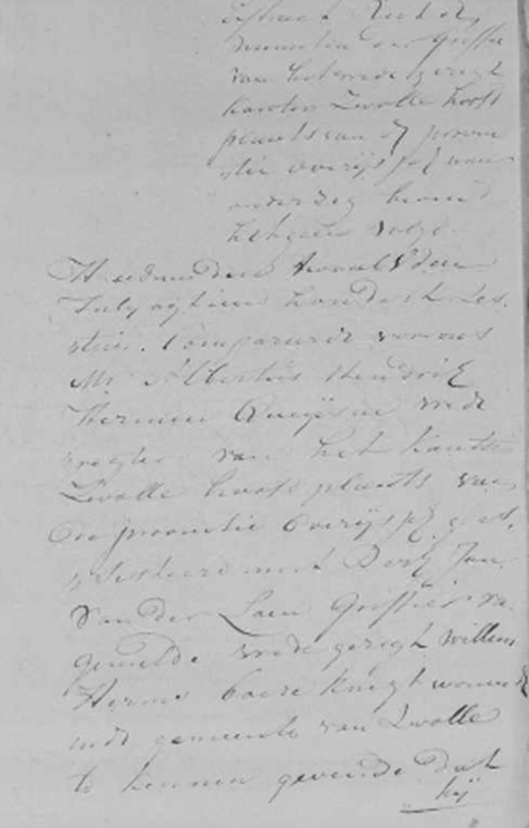 Extract uit de
minuten der Griffie
van het vrede geregt
kanton Zwolle hooft
plaats van de provin
tie Overijssel waar
onder zeg
het geen volgt
Heeden den twaalfden
July agtien hondert zes,
tien. Compareerde voor ons
Mr Albertus Hendrik
Herman vrede
regter van het kanton
Zwolle hooft plaats van
de provintie Overijssel geas,
sisteerd met Derk Jan
van der Griffier van
gemelde vrede geregt Willem
Herms boere knegt wonende
inde gemeente van Zwolle
te kennen gevende dat
hij